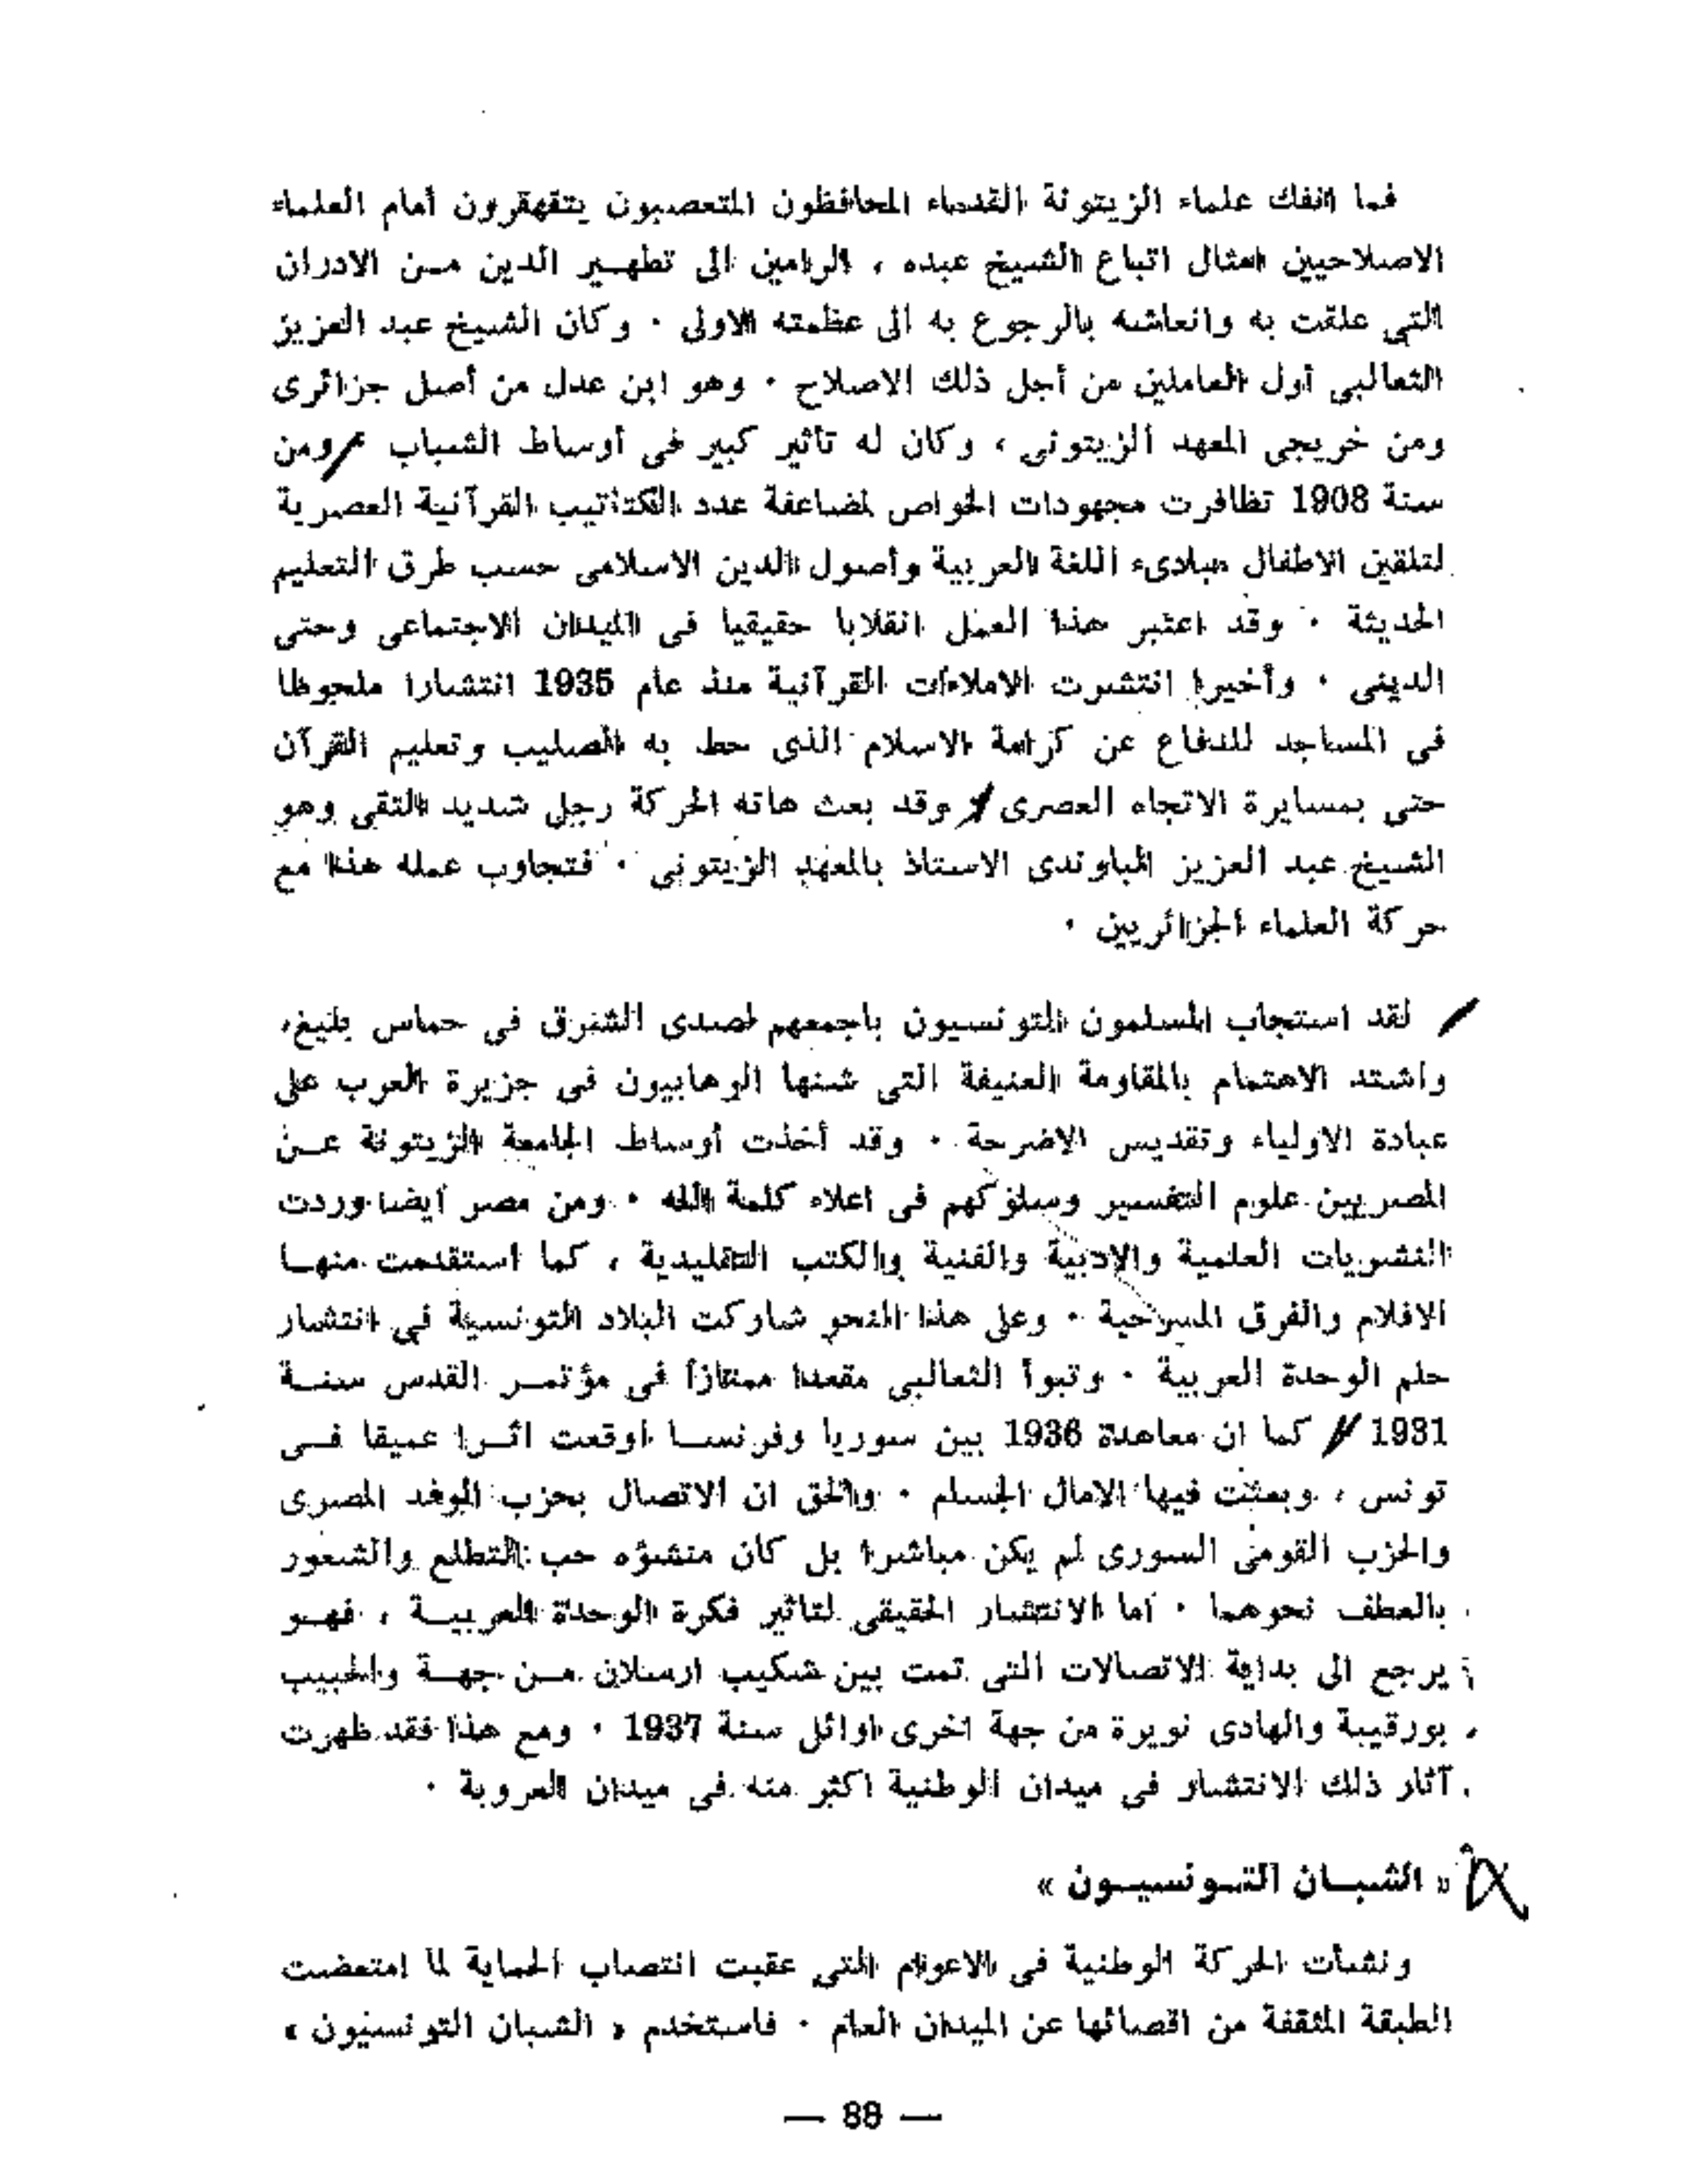 فما انفك علماء الزيتونة القدماء المحافظون المتعصبون يتقهقرون أمام العلماء
الاصلاحيين امثال اتباع الشيخ عبده ، الرامين الى تطهـير الدين مـن الادران
التى علقت به وانعاشه بالرجوع به الى عظمته الاولى · وكان الشيخ عبد العزيز
الثعالبى أول العاملين من أجل ذلك الاصلاح · وهو ابن عدل من أصل جزائرى
ومن خريجى المعهد الزيتونى ، وكان له تأثير كبير فى أوساط الشباب · ومن
سنة 1908 تظافرت مجهودات الخواص لمضاعفة عدد الكتاتيب القرآنية العصرية
لتلقين الاطفال مبادىء اللغة العربية وأصول الدين الاسلامى حسب طرق التعليم
الحديثة · وقد اعتبر هذا العمل انقلابا حقيقيا فى الميدان الاجتماعى وحتى
الدينى · وأخيرا انتشرت الاملاءات القرآنية منذ عام 1935 انتشارا ملحوظا
فى المساجد للدفاع عن كرامة الاسلام الذى حط به الصليب وتعليم القرآن
حتى بمسايرة الاتجاه العصرى · وقد بعث هاته الحركة رجل شديد التقى وهو
الشيخ عبد العزيز الباوندى الاستاذ بالمعهد الزيتونى · فتجاوب عمله هذا مع
حركة العلماء الجزائريين ·
لقد استجاب المسلمون التونسيون باجمعهم لصدى الشرق فى حماس بليغ،
واشتد الاهتمام بالمقاومة العنيفة التى شنها الوهابيون فى جزيرة العرب على
عبادة الاولياء وتقديس الاضرحة · وقد أخذت أوساط الجامعة الزيتونة عـن
المصريين علوم التفسير وسلوكهم فى اعلاء كلمة الله · ومن مصر أيضا وردت
النشريات العلمية والادبية والفنية والكتب التقليدية ، كما استقدمت منهـا
الافلام والفرق المسرحية · وعلى هذا النحو شاركت البلاد التونسية فى انتشار
حلم الوحدة العربية · وتبوأ الثعالبى مقعدا ممتازا فى مؤتمـر القدس سنـة
1931 · كما ان معاهدة 1936 بين سوريا وفرنسـا اوقعت اثـرا عميقا فـى
تونس ، وبعثت فيها الامال الجسلم · والحق ان الاتصال بحزب الوفد المصرى
والحزب القومى السورى لم يكن مباشرا بل كان منشؤه حب التطلع والشعور
بالعطف نحوهما · أما الانتشار الحقيقى لتاثير فكرة الوحدة العربيـة ، فهـو
يرجع الى بداية الاتصالات التى تمت بين شكيب ارسلان مـن جهـة والحبيب
بورقيبة والهادى نويرة من جهة اخرى اوائل سنة 1937 · ومع هذا فقد ظهرت
آثار ذلك الانتشار فى ميدان الوطنية اكثر منه فى ميدان العروبة ·
« الشبـان التـونسيـون »
ونشأت الحركة الوطنية فى الاعوام التى عقبت انتصاب الحماية لما امتعضت
الطبقة المثقفة من اقصائها عن الميدان العام · فاستخدم « الشبان التونسيون »
— 88 —